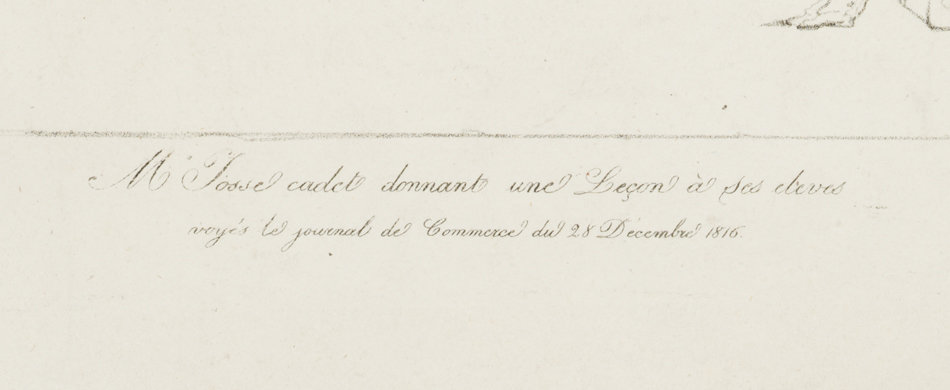 M Josse cadet donnant une Leçon à ses eleves
voyés le journal de Commerce du 28 Décembre 1816.